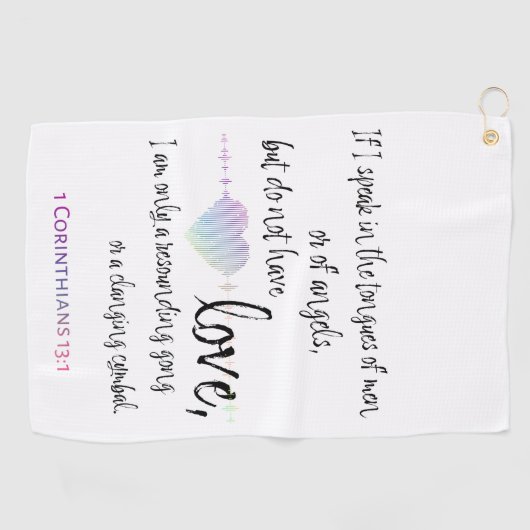 If I speak in the tongues of men
or of angels,
but do not have
love,
I am only a resounding gong
or a clanging cymbal.
1 CORINTHIANS 13:1